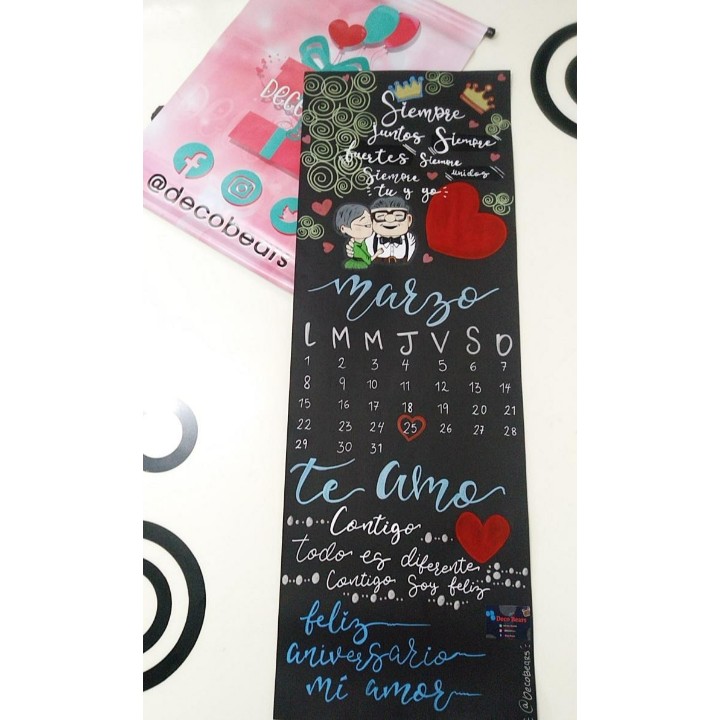 @decobears
Siempre
juntos Siempre
fuertes Siempre
Siempre unidos
tu y yo
marzo
L M M J V S D
1 2 3 4 5 6 7
8 9 10 11 12 13 14
15 16 17 18 19 20 21
22 23 24 25 26 27 28
29 30 31
te amo
Contigo
todo es diferente
Contigo Soy feliz
Deco Bears
feliz
aniversario
mi amor
@DecoBears